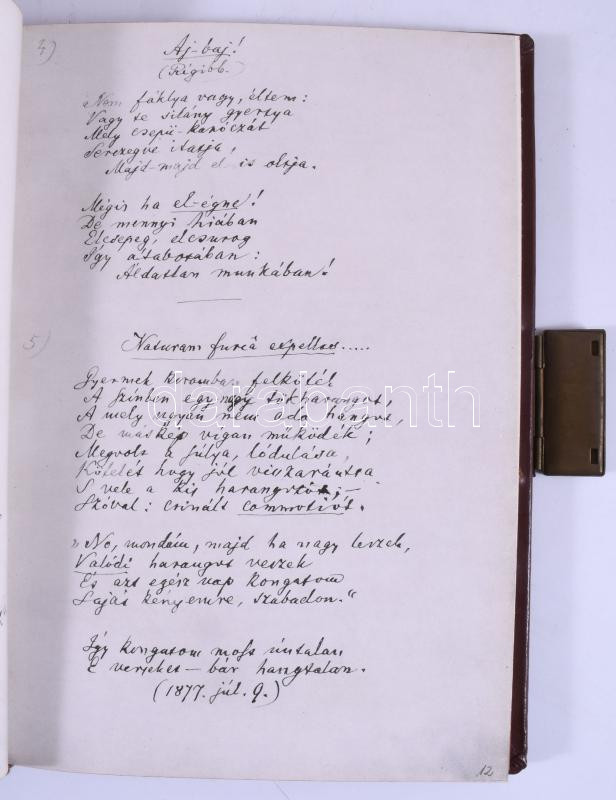 4)
Aj-baj!
(Régibb.)
Nem fáklya vagy, éltem:
Vagy te silány gyertya
Mely csepü-kanóczát
Sercegve itatja,
Majd-majd el is oltja.
Mégis ha el-égne!
De mennyi hiában
Elcsepeg, elcsurog
Így átabotában:
Áldatlan munkában!
5)
Naturam furcâ expellas.....
Gyermek koromban felköték
A színben egy nagy tökharangot,
A mely ugyan nem ada hangot,
De máskép vígan működék;
Megvolt a súlya, lódulása,
Kötelét hogy jól visszarántsa
S vele a kis harangozót; —
Szóval: csinált commotiót.
„No, mondám, majd ha nagy leszek,
Valódi harangot veszek
És azt egész nap kongatom
Saját kényemre, szabadon."
Így kongatom most úntalan
E verseket — bár hangtalan.
(1877. júl. 9.)
12
darabanth